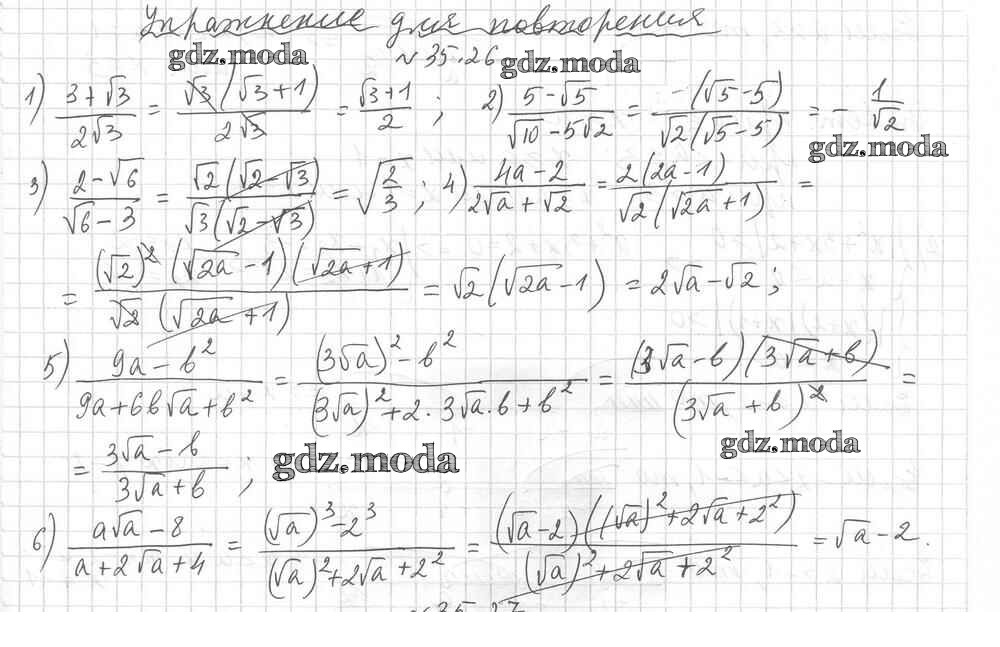 Упражнение для повторения
gdz.moda № 35.26 gdz.moda
1) (3+√3)/(2√3) = (√3(√3+1))/(2√3) = (√3+1)/2 ; 2) (5-√5)/(√10-5√2) = (-(√5-5))/(√2(√5-5)) = -1/√2
gdz.moda
3) (2-√6)/(√6-3) = (√2(√2-√3))/(√3(√2-√3)) = √(2/3) ; 4) (4a-2)/(2√a+√2) = (2(2a-1))/(√2(√(2a)+1)) =
= ((√2)²(√(2a)-1)(√(2a)+1))/(√2(√(2a)+1)) = √2(√(2a)-1) = 2√a-√2 ;
5) (9a-b²)/(9a+6b√a+b²) = ((3√a)²-b²)/((3√a)²+2·3√a·b+b²) = ((3√a-b)(3√a+b))/((3√a+b)²) =
= (3√a-b)/(3√a+b) ; gdz.moda gdz.moda
6) (a√a-8)/(a+2√a+4) = ((√a)³-2³)/((√a)²+2√a+2²) = ((√a-2)((√a)²+2√a+2²))/((√a)²+2√a+2²) = √a-2.
№ 35.27